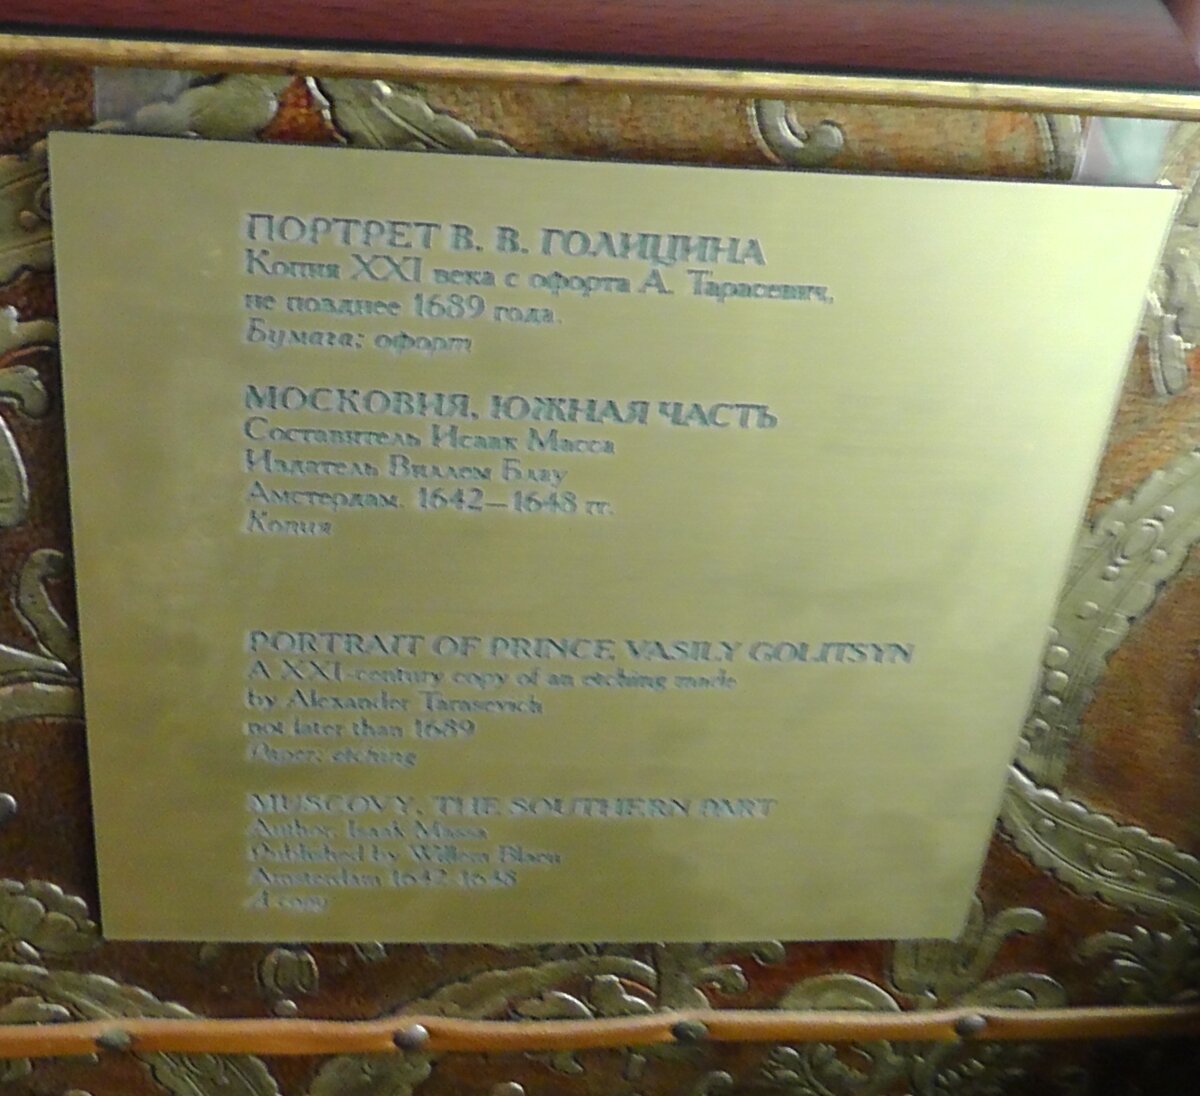 ПОРТРЕТ В. В. ГОЛИЦИНА
Копия XXI века с офорта А. Тарасевич,
не позднее 1689 года.
Бумага; офорт
МОСКОВИЯ, ЮЖНАЯ ЧАСТЬ
Составитель Исаак Масса
Издатель Виллем Блау
Амстердам. 1642–1648 гг.
Копия
PORTRAIT OF PRINCE VASILY GOLITSYN
A XXI-century copy of an etching made
by Alexander Tarasevich
not later than 1689
Paper; etching
MUSCOVY, THE SOUTHERN PART
Author, Isaak Massa
Published by Willem Blaeu
Amsterdam 1642-1648
A copy